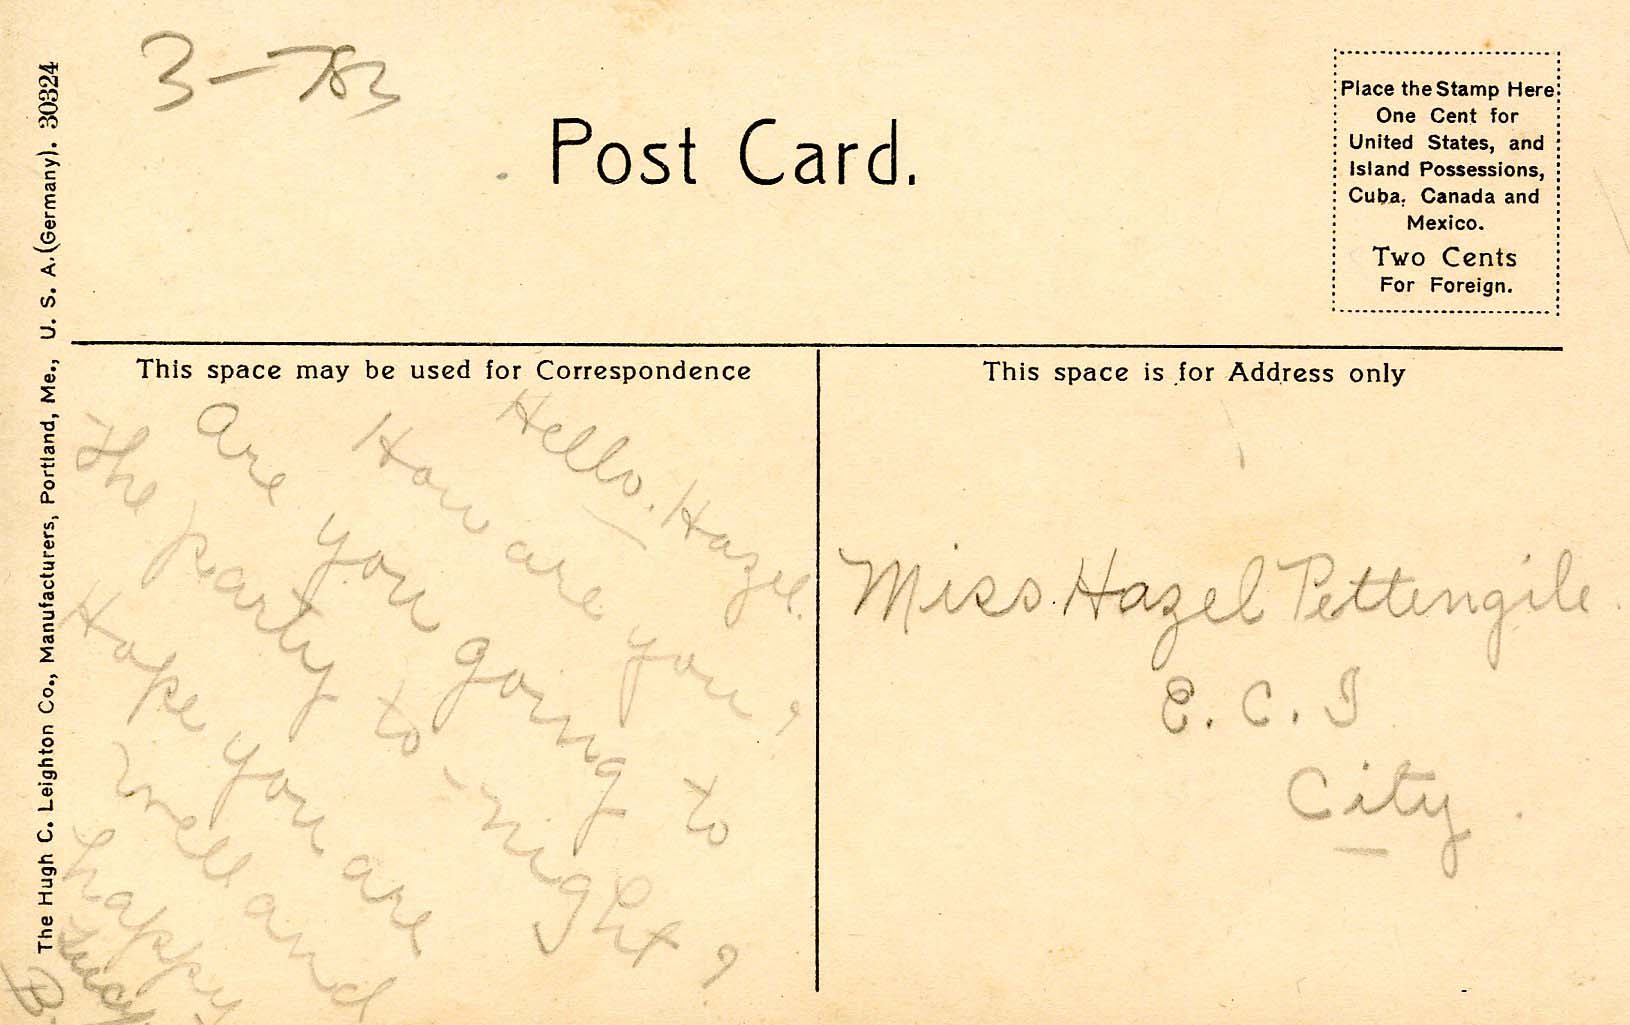 3-783
Post Card.
Place the Stamp Here
One Cent for
United States, and
Island Possessions,
Cuba, Canada and
Mexico.
Two Cents
For Foreign.
The Hugh C. Leighton Co., Manufacturers, Portland, Me., U. S. A. (Germany). 30324
This space may be used for Correspondence
Hello. Hazel.
How are you?
Are you going to
the party to-night?
Hope you are
well and
happy
Lucy
B.
This space is for Address only
Miss. Hazel Pettengile.
E. C. I
City.